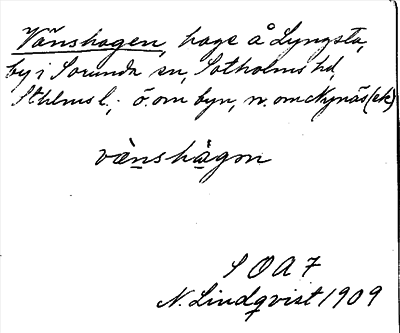 Vänshagen, hage å Lyngsta,
by i Sorunda sn, Sotholms hd,
Sthlms l.; ö. om byn, n. om Nynäs (ek)
vä̀nshàgɐn
S O A 7
N. Lindqvist 1909